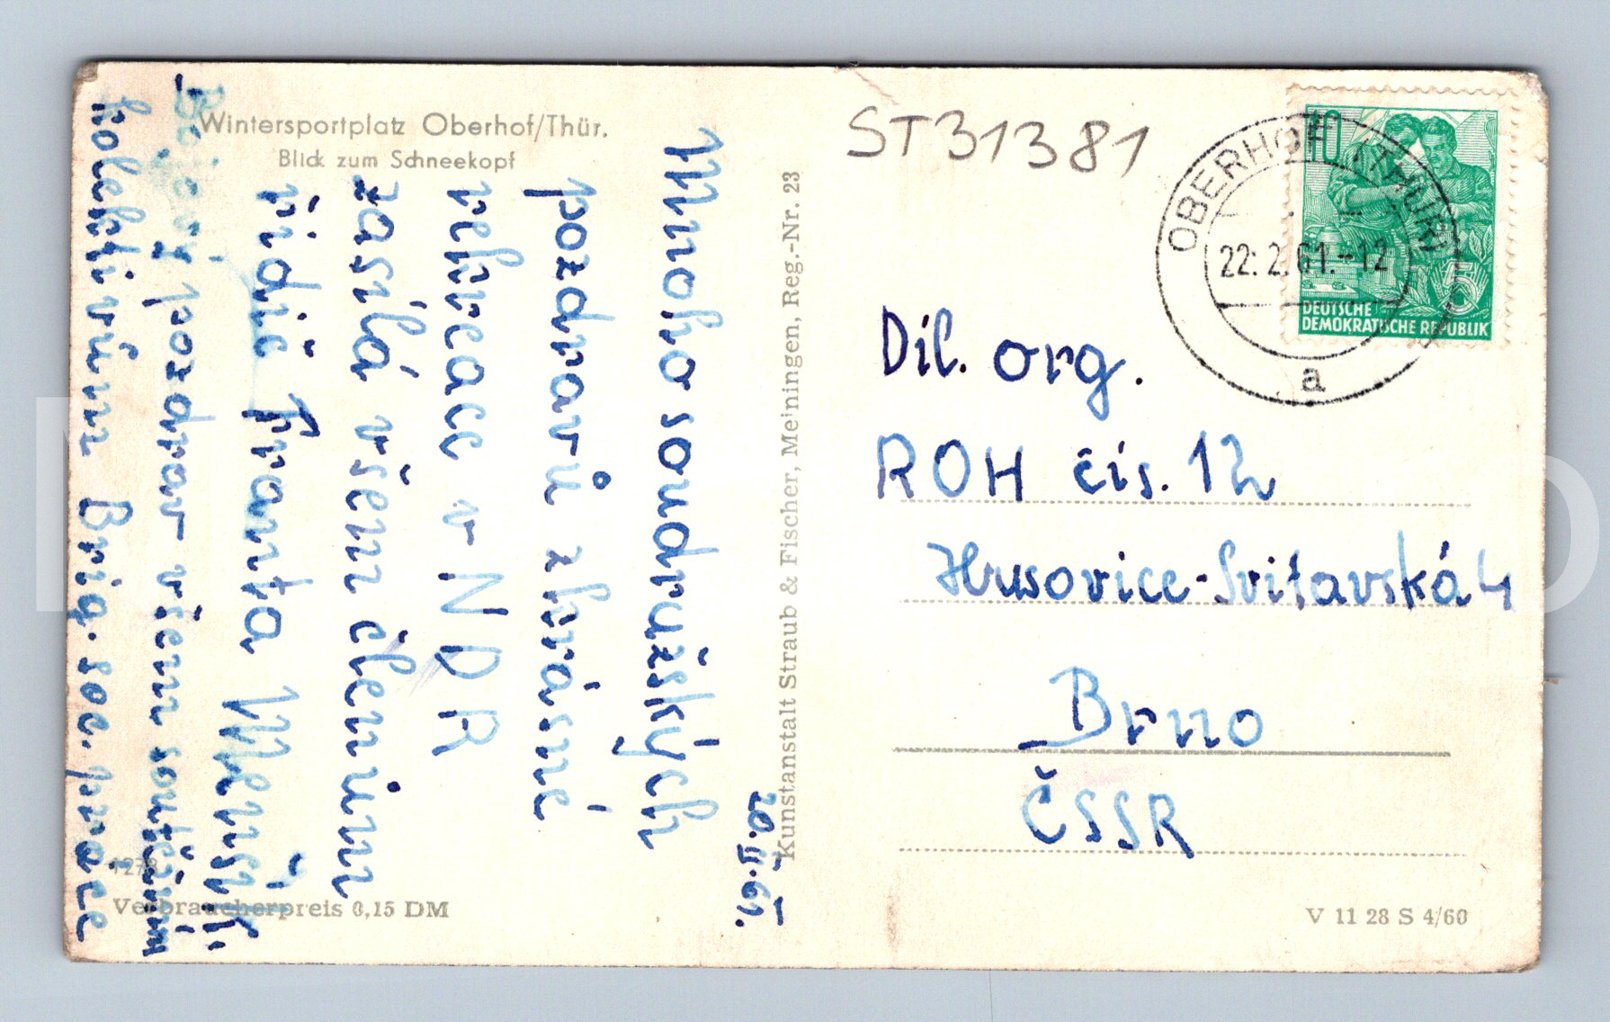 Wintersportplatz Oberhof/Thür.
Blick zum Schneekopf
20.II.61.
Mnoho soudružských
pozdravů z krásné
rekreace v NDR
zasílá všem členům
řidič Franta
Bojový pozdrav všem soudruhům
kolektivům Brig. soc. práce
1278
Verbraucherpreis 0,15 DM
Kunstanstalt Straub & Fischer, Meiningen, Reg.-Nr. 23
ST31381
OBERHOF (THÜR)
22.2.61.-12
a
10
5
DEUTSCHE
DEMOKRATISCHE REPUBLIK
Díl. org.
ROH čís. 12
Husovice-Svitavská 4
Brno
ČSSR
V 11 28 S 4/60